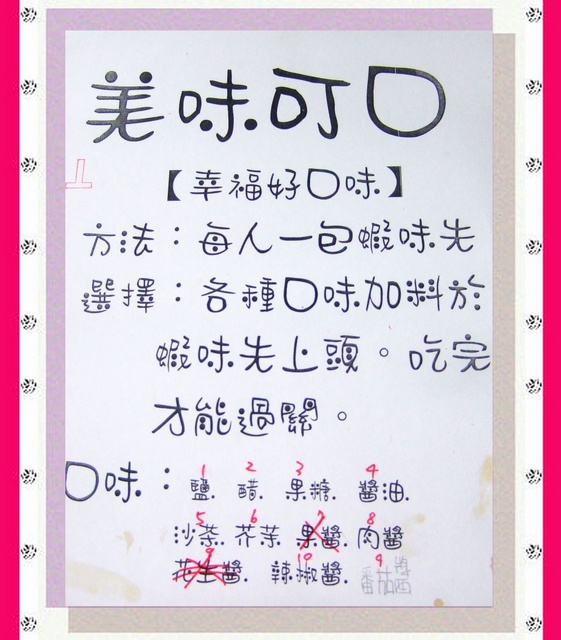 美味可口
【幸福好口味】
方法：每人一包蝦味先
選擇：各種口味加料於
蝦味先上頭。吃完
才能過關。
1 2 3 4
口味：鹽. 醋. 果糖. 醬油.
5 6 7 8
沙茶. 芥茉 果醬. 肉醬
9 10 9
花生醬. 辣椒醬. 番茄醬